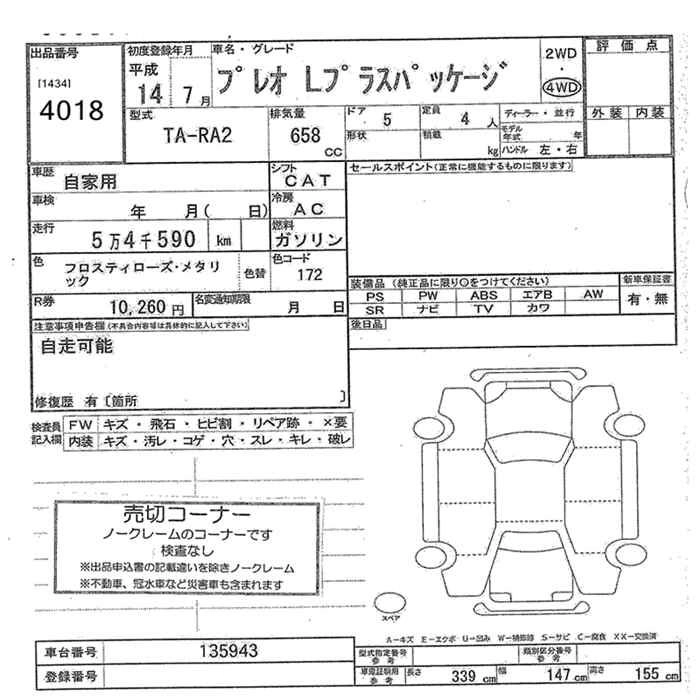 出品番号
[1434]
4018
初度登録年月
平成
14 7月
車名・グレード
プレオ Lプラスパッケージ
2WD
・
4WD
評価点
外装 内装
型式
TA-RA2
排気量
658
CC
ドア
5
定員
4 人
形状
積載
kg
ディーラー・並行
モデル年式 年
ハンドル 左・右
車歴
自家用
シフト
CAT
車検
年 月( 日)
冷房
AC
走行
5万4千590 km
燃料
ガソリン
色
フロスティローズ・メタリ
ック
色替
色コード
172
R券
10,260円
名変通知期限
月 日
セールスポイント(正常に機能するものに限ります)
装備品(純正品に限り○をつけてください)
新車保証書
PS PW ABS エアB AW
有・無
SR ナビ TV カワ
後日品
注意事項申告欄(不具合内容等は具体的に記入して下さい)
自走可能
修復歴 有〔箇所 〕
検査員
記入欄
FW キズ・飛石・ヒビ割・リペア跡・×要
内装 キズ・汚レ・コゲ・穴・スレ・キレ・破レ
売切コーナー
ノークレームのコーナーです
検査なし
※出品申込書の記載違いを除きノークレーム
※不動車、冠水車など災害車も含まれます
スペア
A-キズ E-エクボ U-凹み W-補修跡 S-サビ C-腐食 XX-交換済
車台番号
135943
登録番号
型式指定番号
参考
類別区分番号
参考
車両証明用
参考
長さ 339 cm
幅 147 cm
高さ 155 cm